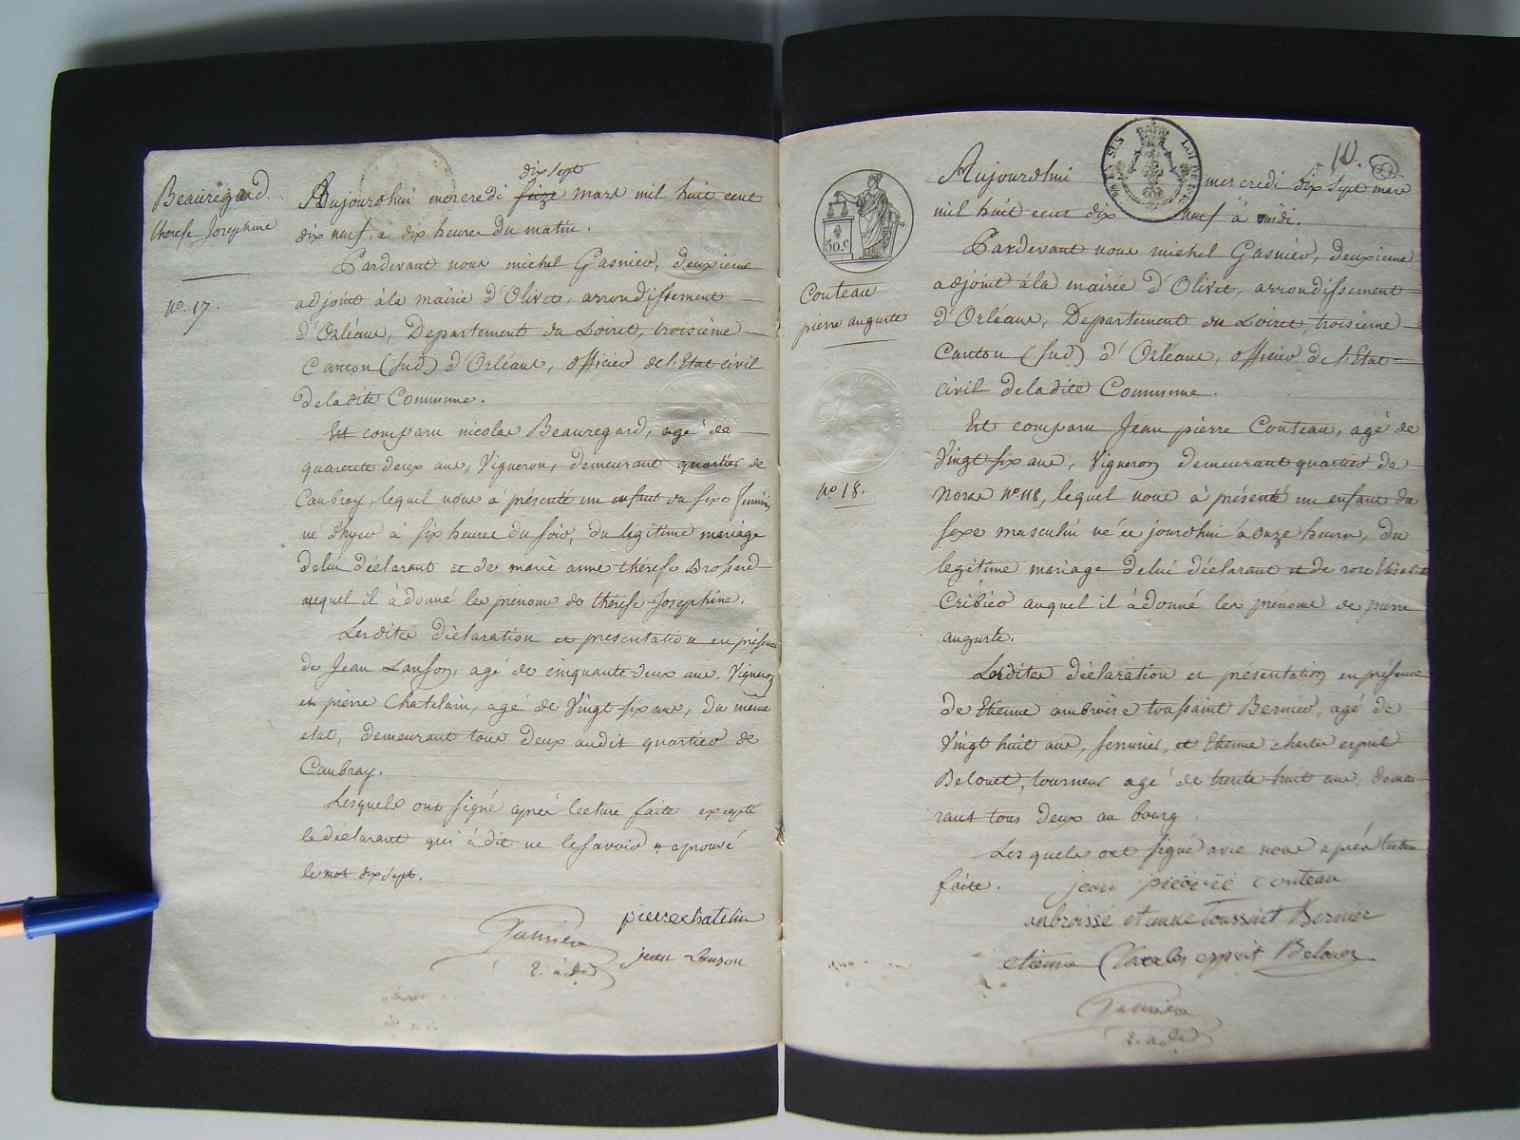 Beauregard.
therese Josephine
no. 17.
dix sept
Aujourdhui mercredi seize mars mil huit cent
dix neuf, a dix heures du matin.
Pardevant nous michel Gasnier, deuxieme
adjoint à la mairie d'Olivet, arrondissement
d'Orléans, Departement du Loiret, troisieme
Canton (Sud) d'Orléans, officier de l'Etat civil
de la dite Commune.
Est comparu nicolas Beauregard, agé de
quarente deux ans, Vigneron, demeurant quartier de
Caubray, lequel nous à présenté un enfant du sexe feminin
né d'hyer à six heures du soir, du legitime mariage
de lui déclarant et de marie anne thérese Brossard
auquel il à donné les prenoms de therese Josephine.
Lesdites déclaration et presentation en présence
de Jean Lanson, agé de cinquante deux ans, Vigneron
et pierre Chatelain, agé de Vingt six ans, du même
etat, demeurant tous deux audit quartier de
Caubray.
Lesquels ont signé après lecture faite excepté
le déclarant qui à dit ne le savoir aprouvé
le mot dix sept.
pierre chatelin
Gasnier
jean Lanson
2. adj
10.
LOI
30. C
Couteau
pierre auguste
no 18.
Aujourdhui mercredi dix sept mars
mil huit cent dix neuf à midi.
Pardevant nous michel Gasnier, deuxieme
adjoint à la mairie d'Olivet, arrondissement
d'Orléans, Departement du Loiret, troisieme
Canton (Sud) d'Orléans, officier de l'Etat
civil de la dite Commune.
Est comparu Jean pierre Couteau, agé de
Vingt six ans, Vigneron demeurant quartier de
no 118, lequel nous à présenté un enfant du
sexe masculin né ce jourdhui à onze heures, du
legitime mariage de lui déclarant et de rose
Cribier auquel il à donné les prénoms de pierre
auguste.
Lesdites déclaration et présentation en présence
de Etienne ambroise toussaint Bernier, agé de
Vingt huit ans, serrurier, et Etienne charles esprit
Belouet, tourneur agé de trente huit ans, demeu-
rant tous deux au bourg.
Lesquels ont signé avec nous après lecture
faite.
jean pierre couteau
anbroisse etienne Toussaint Bernier
etienne Charles esprit Belouet
Gasnier
2. adj